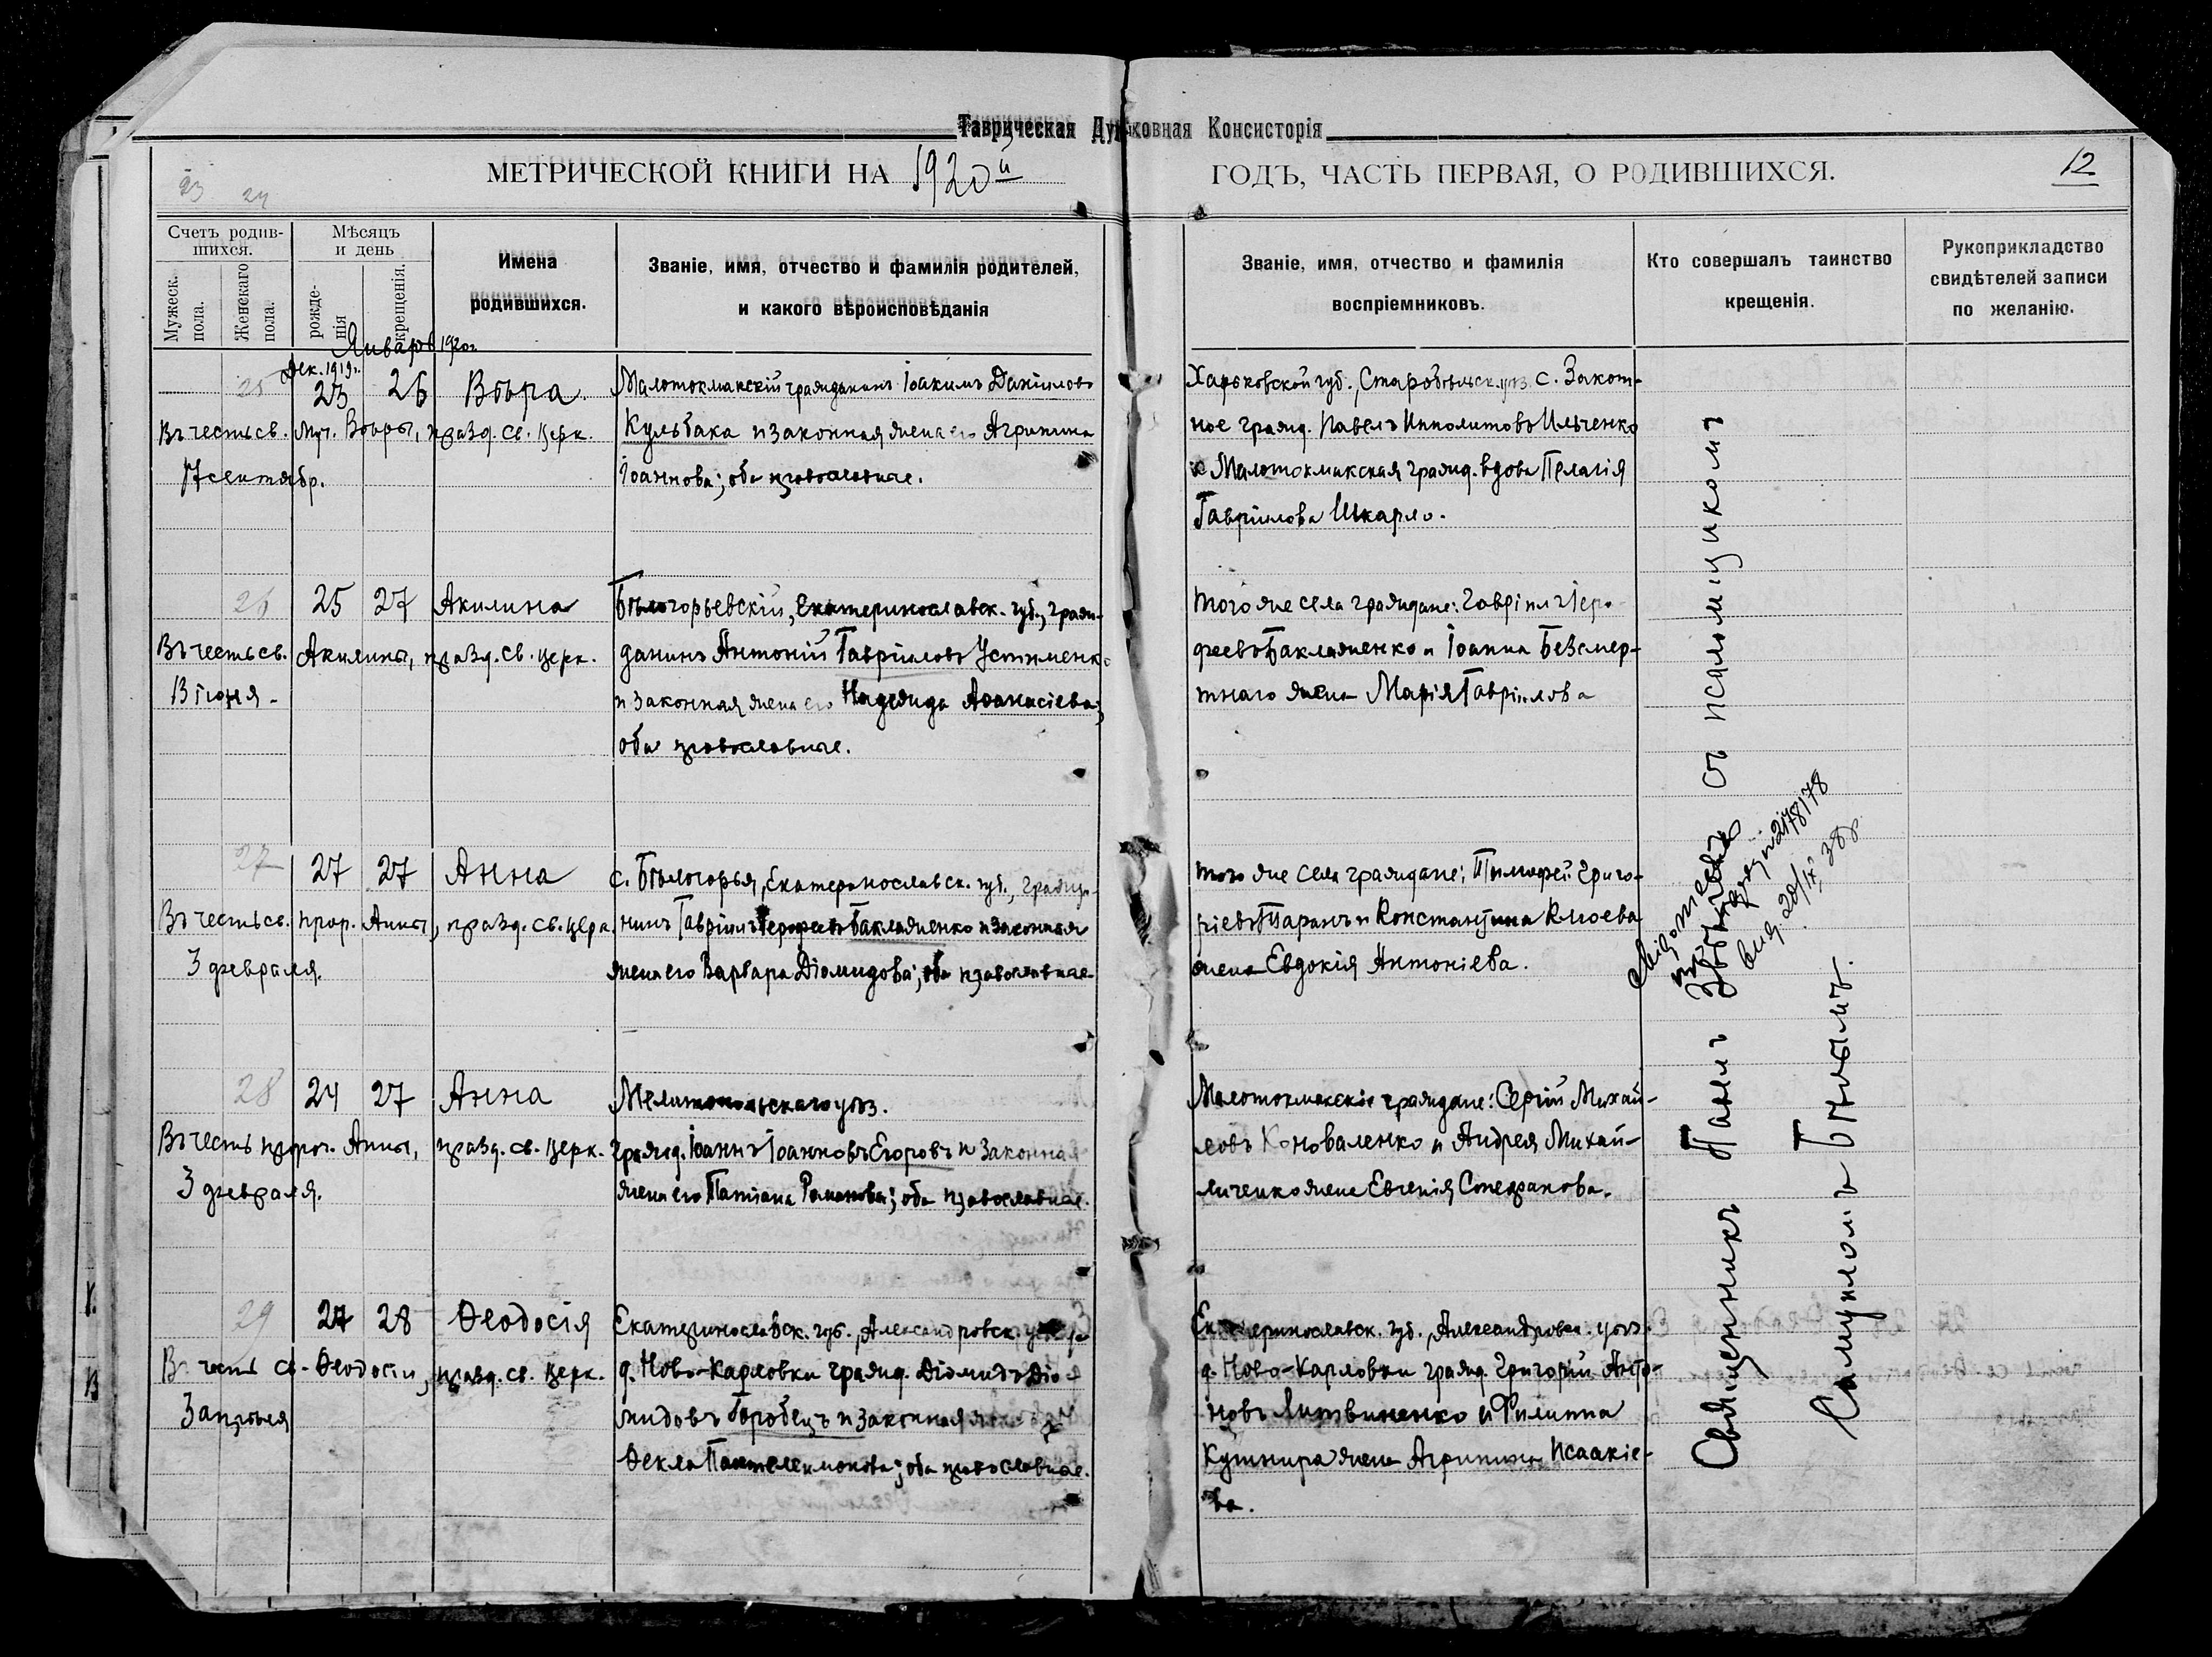 Таврическая Духовная Консисторія
МЕТРИЧЕСКОЙ КНИГИ НА 1920й ГОДЪ, ЧАСТЬ ПЕРВАЯ, О РОДИВШИХСЯ.
12
23 24
Счетъ родив-
шихся.
Мужеск.
пола.
Женскаго
пола.
Мѣсяцъ
и день
рожде-
нія
крещенія.
Имена
родившихся.
Званіе, имя, отчество и фамилія родителей,
и какого вѣроисповѣданія
Званіе, имя, отчество и фамилія
воспріемниковъ.
Кто совершалъ таинство
крещенія.
Рукоприкладство
свидѣтелей записи
по желанію.
Январь 1920г.
Дек. 1919г.
25 23 26 Вѣра
Въ честь св. муч. Вѣры, празд. св. церк.
17 сентябр.
Малотокмакскій гражданинъ Іоакимъ Даніиловъ
Кульбака и законная жена его Агрипина
Іоаннова; оба православные.
Харьковской губ., Старобѣльск. уѣз. с. Закот-
ное гражд. Павелъ Ипполитовъ Ильченко
и Малотокмакская гражд. вдова Пелагія
Гавріилова Шкарло.
26 25 27 Акилина
Въ честь св. Акилины, празд. св. церк.
13 іюня.
Бѣлогорьевскій, Екатеринославск. губ., граж-
данинъ Антоній Гавріиловъ Устименко
и законная жена его Надежда Аѳанасіева;
оба православные.
того же села граждане: Гавріилъ Іеро-
феевъ Баклаженко и Іоанна Безсмер-
тнаго жена Марія Гавріилова
27 27 27 Анна
Въ честь св. прор. Анны, празд. св. церк.
3 февраля.
с. Бѣлогорья, Екатеринославск. губ., гражда-
нинъ Гавріилъ Іерофеевъ Баклаженко и законная
жена его Варвара Діомидова; оба православные.
того же села граждане: Тимофей Григо-
ріевъ Таранъ и Константина Клюева
жена Евдокія Антоніева.
28 24 27 Анна
Въ честь прор. Анны, празд. св. церк.
3 февраля.
Мелитопольскаго уѣз.
гражд. Іоаннъ Іоанновъ Егоровъ и законная
жена его Татіана Романова; оба православные.
Малотокмакскіе граждане: Сергій Михай-
ловъ Коноваленко и Андрея Михай-
личенко жена Евгенія Стефанова.
29 27 28 Ѳеодосія
Въ честь св. Ѳеодосіи, празд. св. церк.
3 апрѣля
Екатеринославск. губ., Александровск.
д. Ново-Карловки гражд. Діомидъ Діо-
мидовъ Горобецъ и законная жена
Ѳекла Пантелеимонова; оба православные.
Екатеринославск. губ., Александровск. уѣз.
д. Ново-Карловки гражд. Григорій Анто-
новъ Литвиненко и Филиппа
Кушнира жена Агрипина Исаакіе-
ва.
Священникъ Павелъ съ псаломщикомъ
Самуиломъ Бѣлымъ.